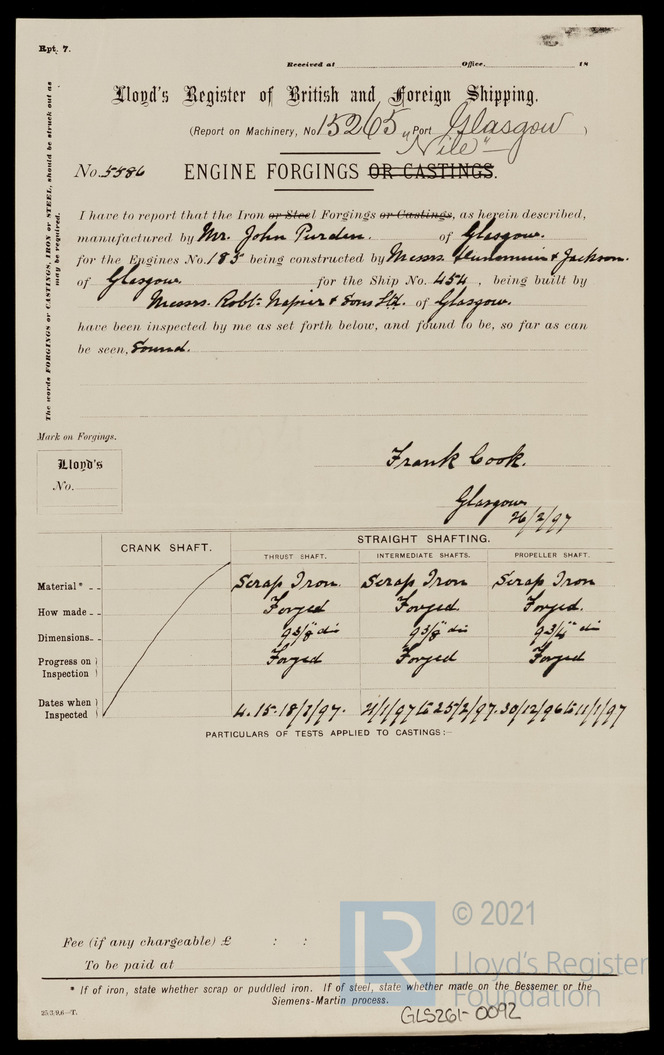 Rpt. 7.
Received at Office. 18
Lloyd's Register of British and Foreign Shipping.
(Report on Machinery, No 15265 Port Glasgow )
"Nile"
No. 5586 ENGINE FORGINGS OR CASTINGS.
I have to report that the Iron or Steel Forgings or Castings, as herein described,
manufactured by Mr. John Purden. of Glasgow.
for the Engines No. 185 being constructed by Messrs. & Jackson.
of Glasgow for the Ship No. 454, being built by
Messrs. Robt. Napier & Sons Ltd. of Glasgow.
have been inspected by me as set forth below, and found to be, so far as can
be seen, Sound.
The words FORGINGS or CASTINGS, IRON or STEEL, should be struck out as
may be required.
Mark on Forgings.
Lloyd's
No.
Frank Cook.
Glasgow
26/2/97
CRANK SHAFT. STRAIGHT SHAFTING.
THRUST SHAFT. INTERMEDIATE SHAFTS. PROPELLER SHAFT.
Material* Scrap Iron. Scrap Iron Scrap Iron
How made Forged Forged. Forged.
Dimensions 9 5/8" dia 9 3/8" dia 9 3/4" dia
Progress on Inspection Forged Forged Forged
Dates when Inspected 4.15.18/1/97. 21/1/97 to 25/2/97. 30/12/96 to 11/1/97
PARTICULARS OF TESTS APPLIED TO CASTINGS:—
Fee (if any chargeable) £ : :
To be paid at
* If of iron, state whether scrap or puddled iron. If of steel, state whether made on the Bessemer or the
Siemens-Martin process.
25/3/96—T.
GLS261-0092
LR
© 2021
Lloyd's Register
Foundation